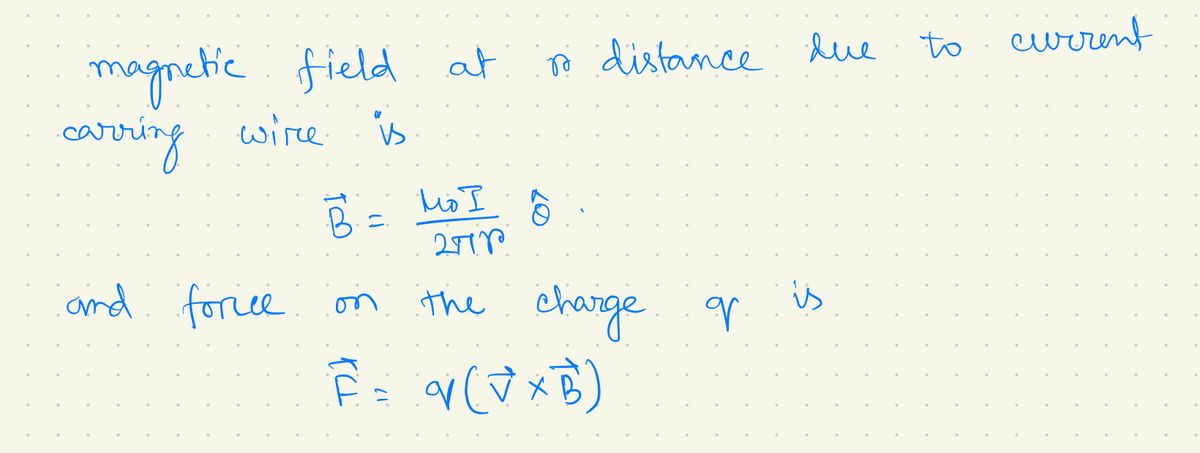 magnetic field at r distance due to current
carring wire is
B⃗ = μ₀I / 2πr θ̂ .
and force on the charge q is
F⃗ = q(v⃗ × B⃗)